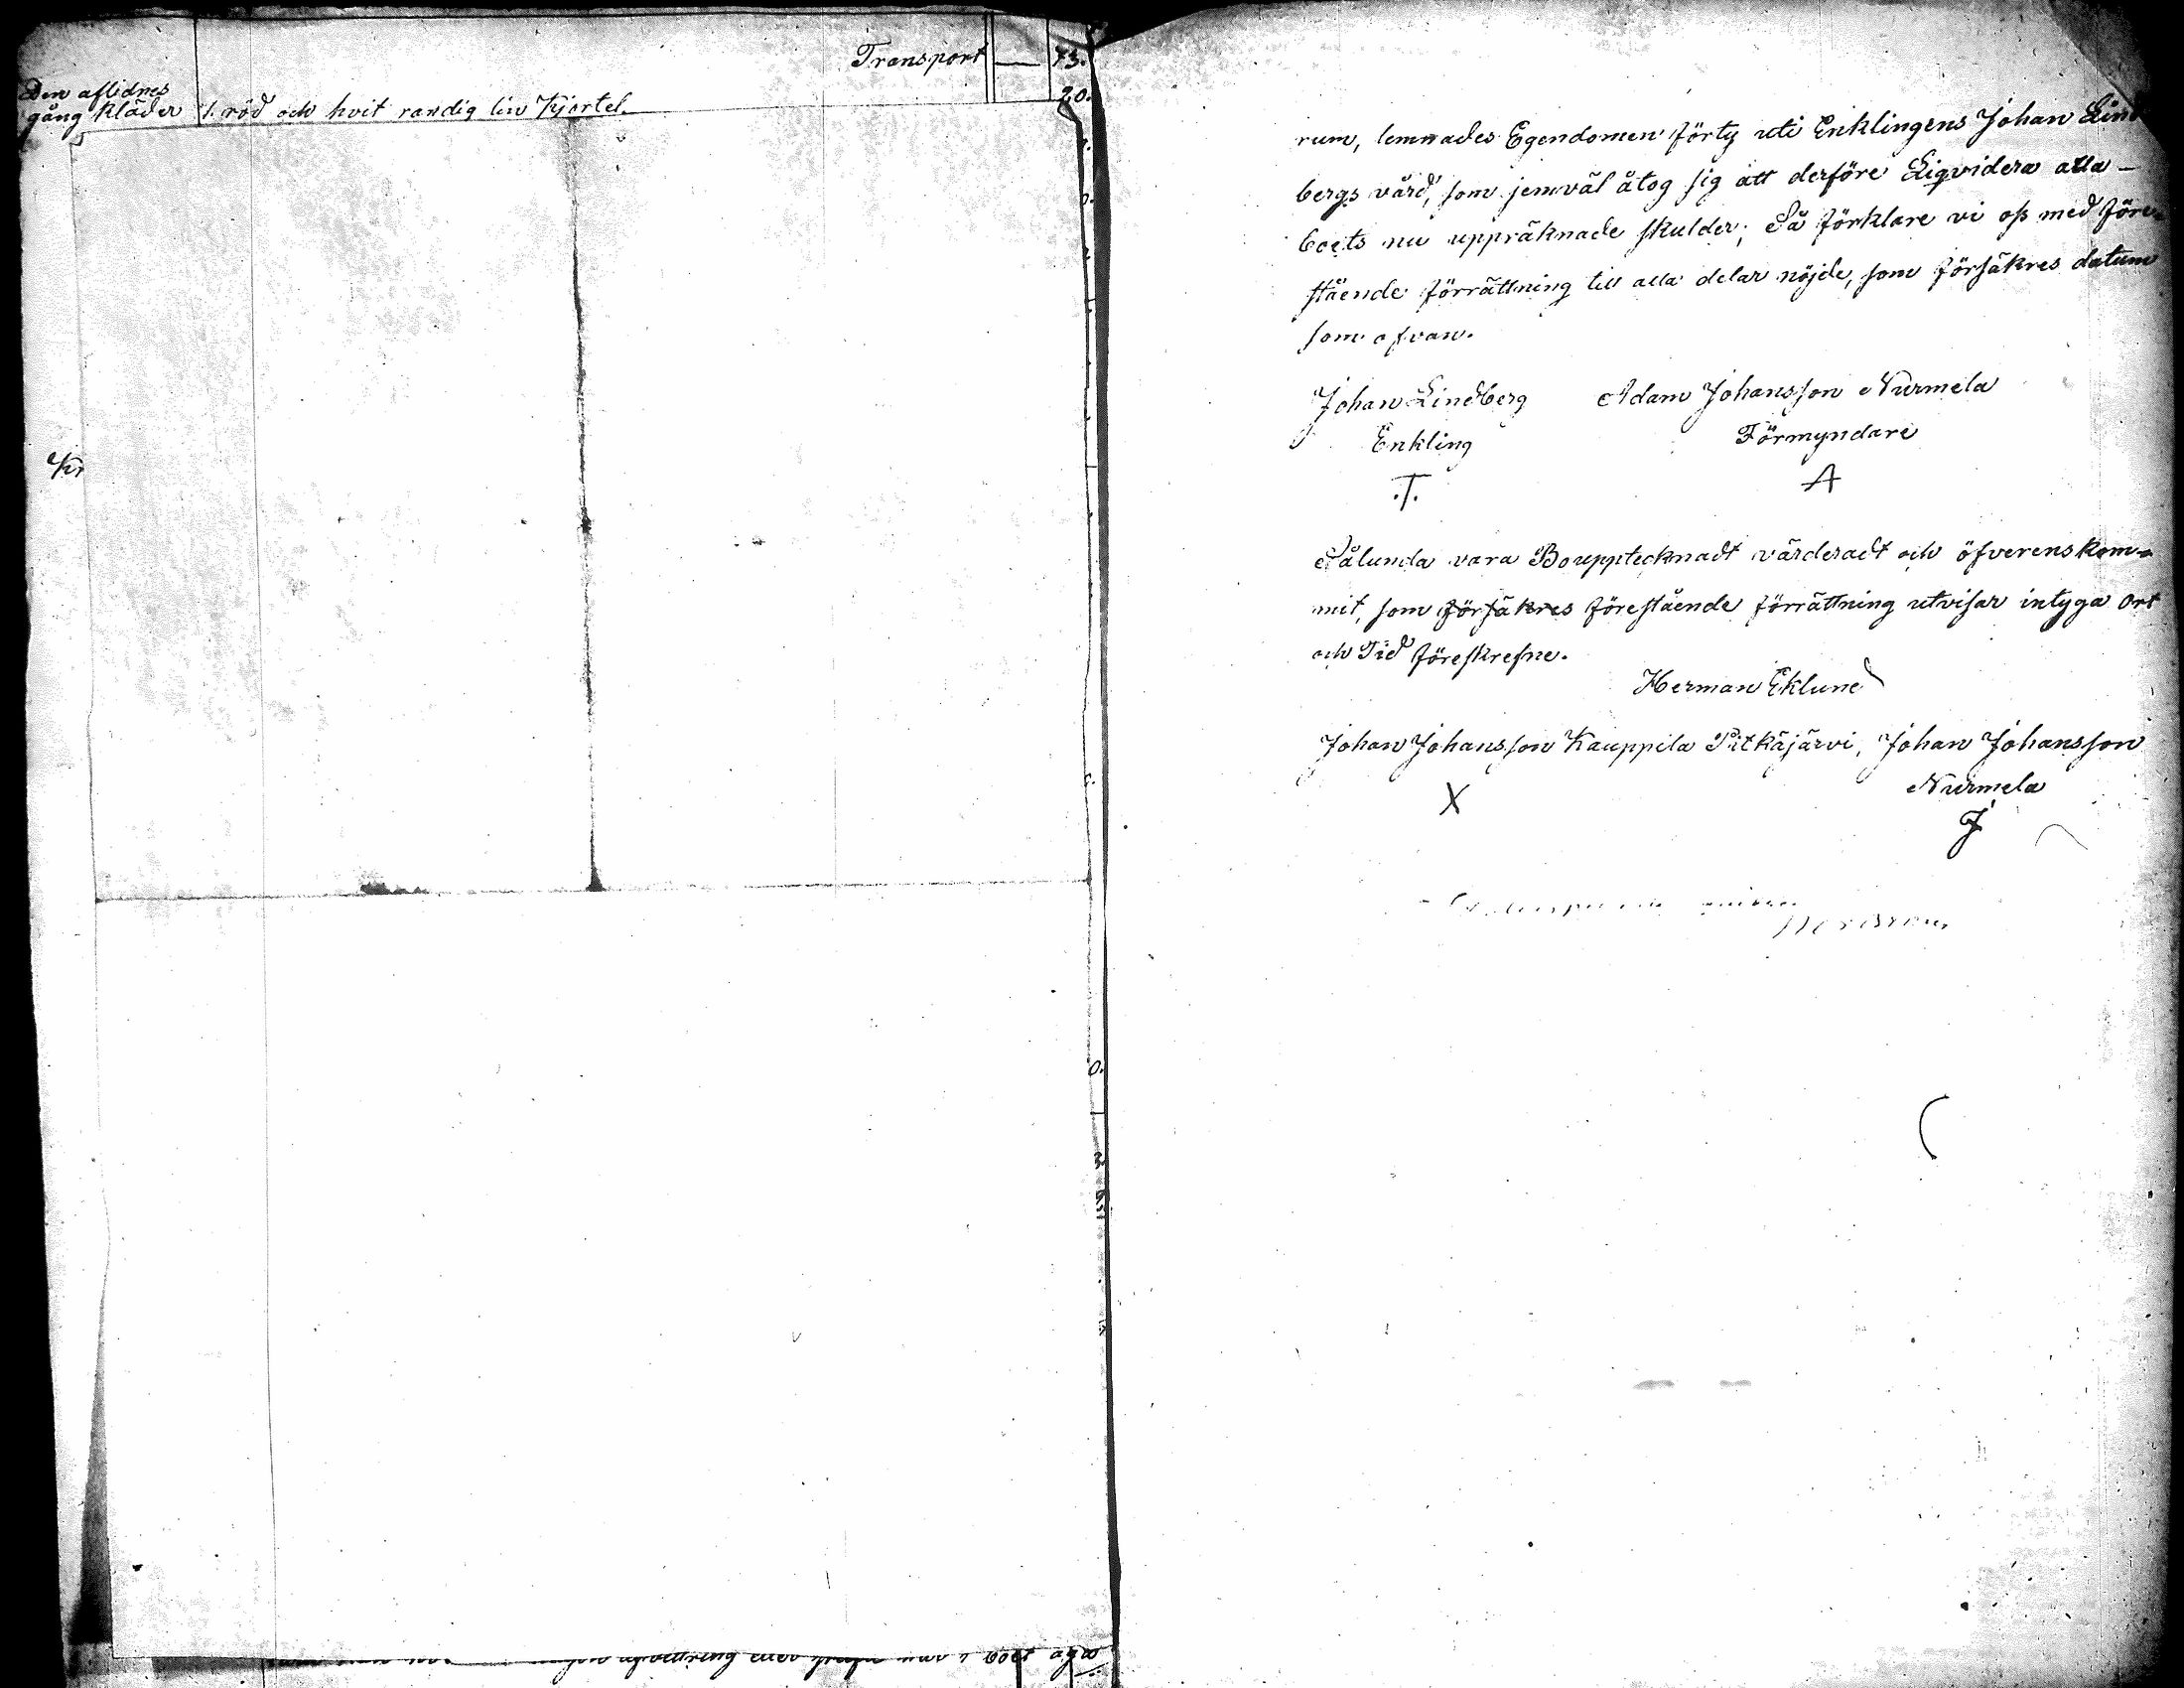 Transport — 73.
Den aflidnes
gång kläder 1. röd och hvit randig lin Kjortel. 20.
rum, lemnades Egendomen förty uti Enklingens Johan Lind
bergs vård, som jemväl åtog sig att derföre Liqvidera alla –
boets nu uppräknade skulder; Så förklare vi oss med före-
stående förrättning till alla delar nöjde, som försäkres datum
som ofvan.
Johan Lindberg Adam Johansson Nurmela
Enkling Förmyndare
.T. A
Sålunda vara Boupptecknadt värderadt och öfverenskom-
mit, som försäkres förestående förrättning utvisar intyga Ort
och Tid föreskrefne.
Herman Eklund
Johan Johansson Kauppila Pitkäjärvi, Johan Johansson
Nurmela
X J